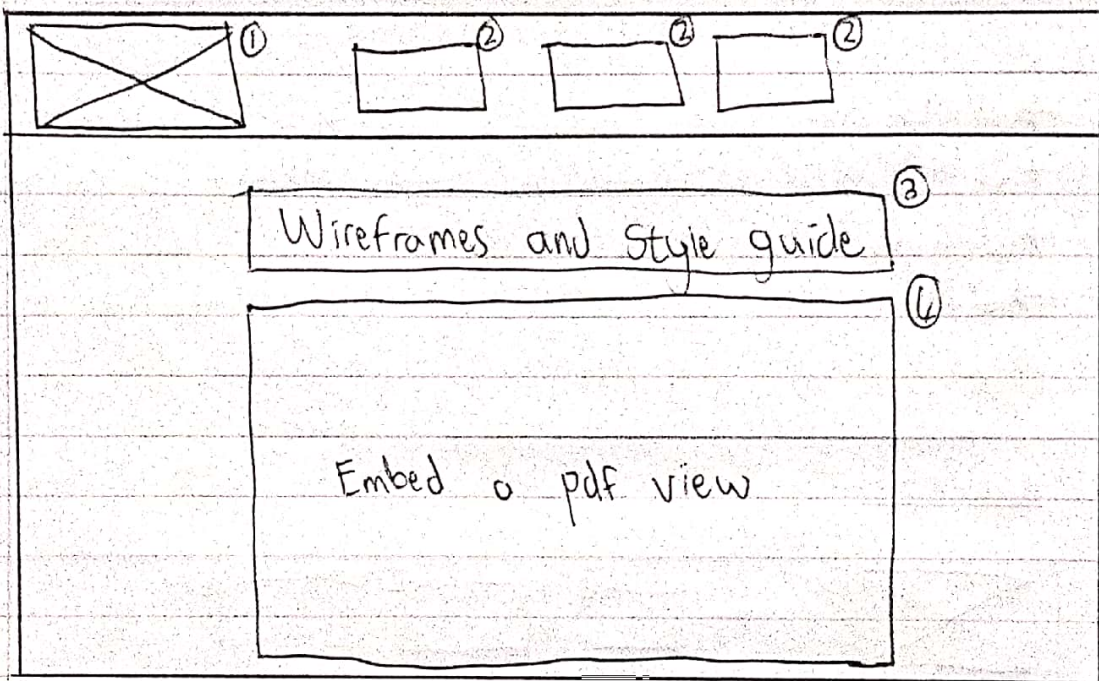 ① ② ② ②
Wireframes and Style guide ③
④
Embed a pdf view